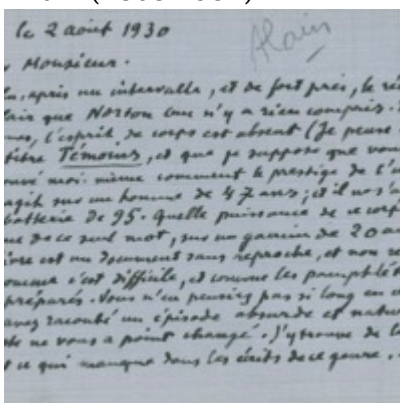 le 2 août 1930
Alain
Monsieur.
après un intervalle, et de fort près, le
que Norton Cru n'y a rien compris.
l'esprit de corps est absent (Je pense
titre Témoins, et que je suppose que vous
moi-même comment le prestige de l'
agit sur un homme de 47 ans; et il
batterie de 95. Quelle puissance de ce corps
de ce seul mot, sur un gamin de 20 ans
est un document sans reproche, et non
c'est difficile, et comme les pamphlets
préparés. Vous n'en pensiez pas si long en
avez raconté un épisode absurde et
ne vous a point changé. J'y trouve de
ce qui manque dans les écrits de ce genre.